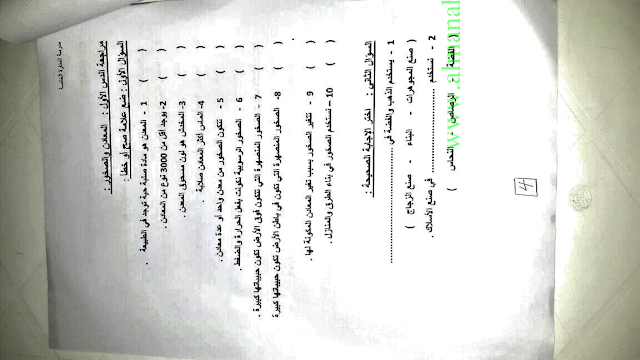 مراجعة الدرس الأول : المعادن والصخور :
السؤال الأول : ضع علامة صح أو خطأ :
1 - المعدن هو مادة صلبة حية توجد في الطبيعة . ( )
2- يوجد أقل من 3000 نوع من المعادن . ( )
3- المخدش هو لون مسحوق المعدن . ( )
4- الماس أكثر المعادن صلابة . ( )
5 - تتكون الصخور من معدن واحد أو عدة معادن . ( )
6 - الصخور الرسوبية تكونت بفعل الحرارة والضغط . ( )
7 - الصخور المنصهرة التي تتكون فوق الأرض تكون حبيباتها كبيرة . ( )
8- الصخور المنصهرة التي تكون في باطن الأرض تكون حبيباتها كبيرة ( )
9 - تتغير الصخور بسبب تغير المعادن المكونة لها . ( )
10 – تستخدم الصخور في بناء الطرق والمنازل . ( )
السؤال الثاني : اختر الإجابة الصحيحة :
1 - يستخدم الذهب والفضة في ........................
( صنع المجوهرات - البناء - صنع الزجاج )
2 - تستخدم ........................ في صنع الأسلاك .
( الفضة - الرصاص - النحاس )
4